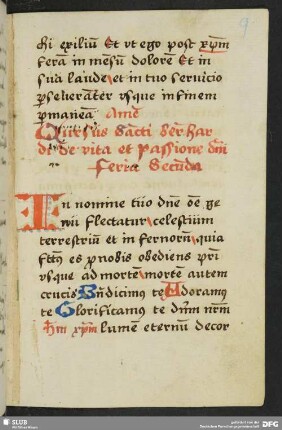 9
chi exiliū Et vt ego post xp̄m
ferā in mēsū dolorē Et in
sua laude et in tuo servicio
p̱severāter vsque in finem
p̱maneā Amē
Cursus Sācti Bērhar
di de vita et passione dn̄i
Ferra Secūda
In nomine tuo dn̄e oē ge
nu flectatur celestium
terrestriū et infernorū quia
fct̄us es p̱ nobis obediens pr̄i
vsque ad mortē morte autem
crucis Bn̄dicimus te Adoramus
te Glorificamus te dn̄m nr̄m
ih̄m xp̄m lumē eternū decor
SLUB
DFG